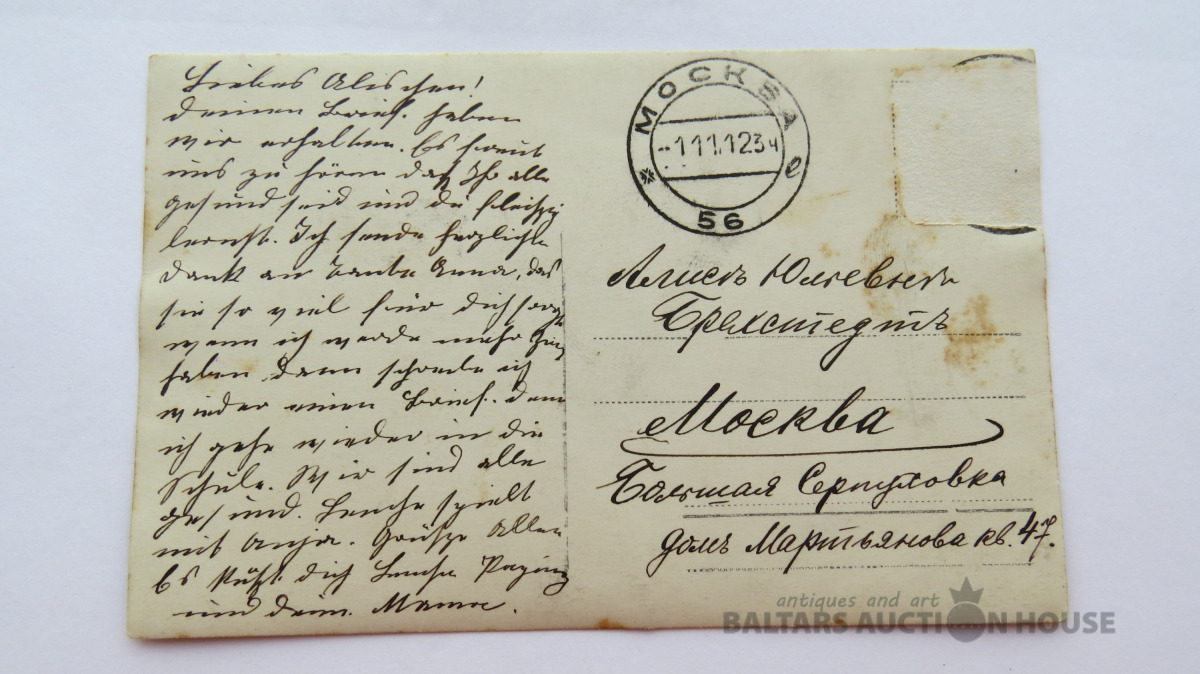 Liebes Alischen!
deinen Brief haben
wir erhalten. Es freut
uns zu hören daß Ihr alle
gesund seid und du fleißig
lernst. Ich sende herzlichen
Dank an Tante Anna, das
sie so viel für dich sorgt
wenn ich werde mehr Zeit
haben, dann schreibe ich
wieder einen Brief. denn
ich gehe wieder in die
Schule. Wir sind alle
gesund. spielt
mit Grüße Allen
Es küßt dich
und dein Mama.
МОСКВА
-111.12 3ч
* е
56
Алисѣ Юльевнѣ
Брехстедтъ
Москва
Большая Серпуховка
домъ Мартьянова кв. 47.
antiques and art
BALTARS AUCTION HOUSE